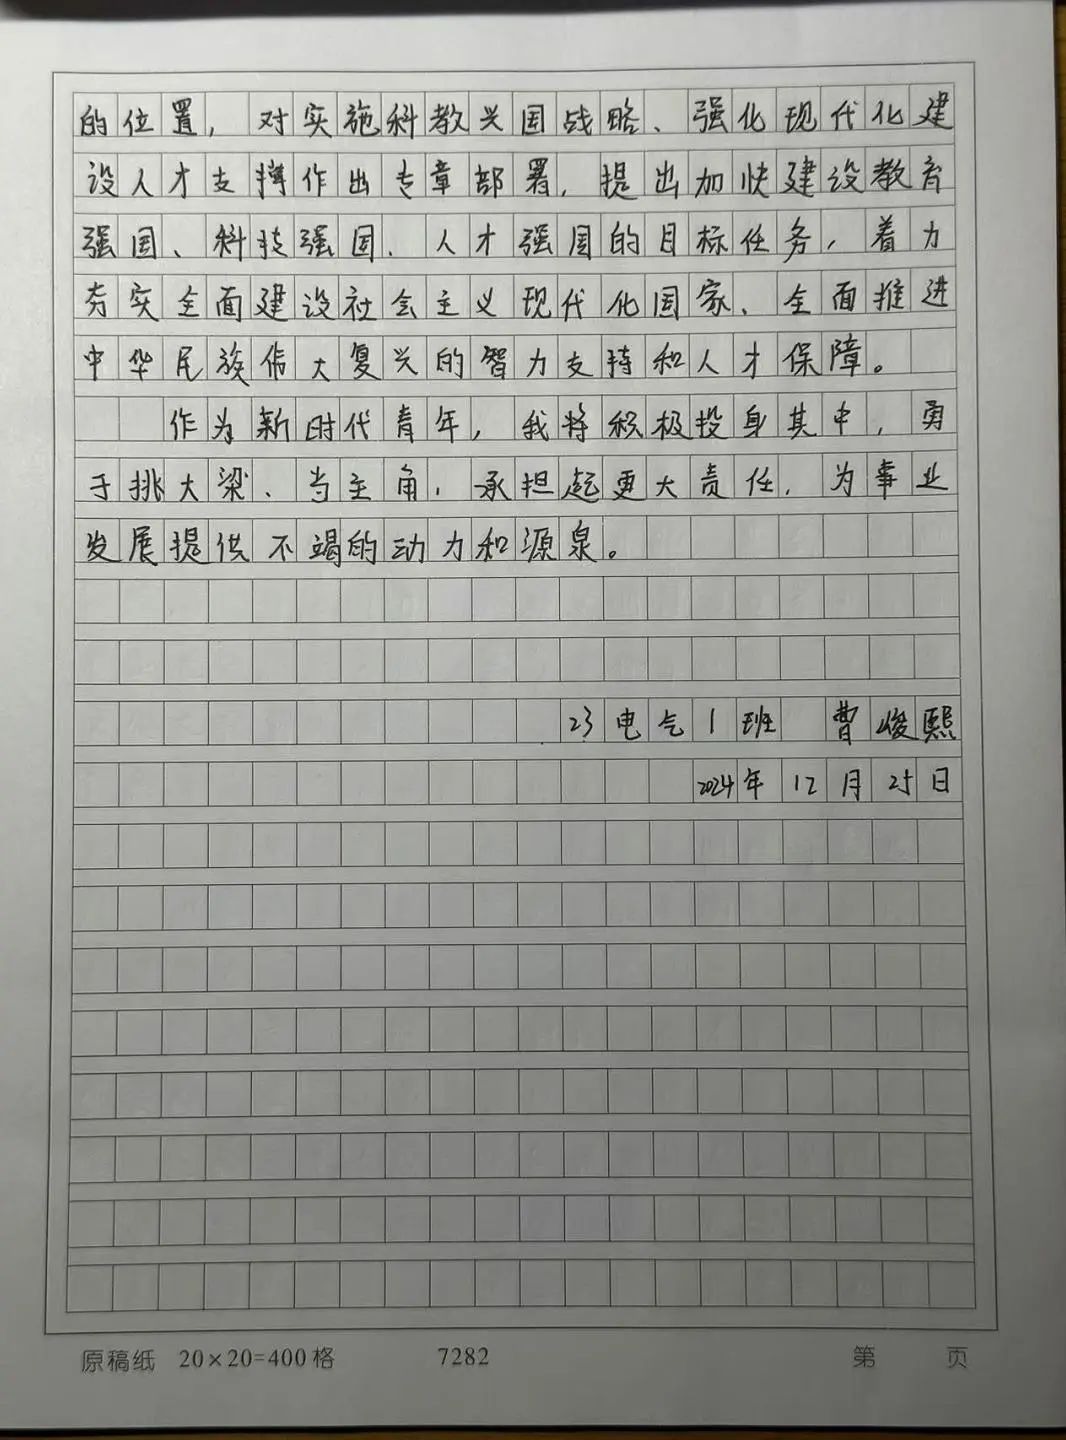 的位置，对实施科教兴国战略、强化现代化建
设人才支撑作出专章部署，提出加快建设教育
强国、科技强国、人才强国的目标任务，着力
夯实全面建设社会主义现代化国家、全面推进
中华民族伟大复兴的智力支持和人才保障。
作为新时代青年，我将积极投身其中，勇
于挑大梁、当主角，承担起更大责任，为事业
发展提供不竭的动力和源泉。
23电气1班 曹峻熙
2024年12月25日
原稿纸 20×20=400格 7282 第 页